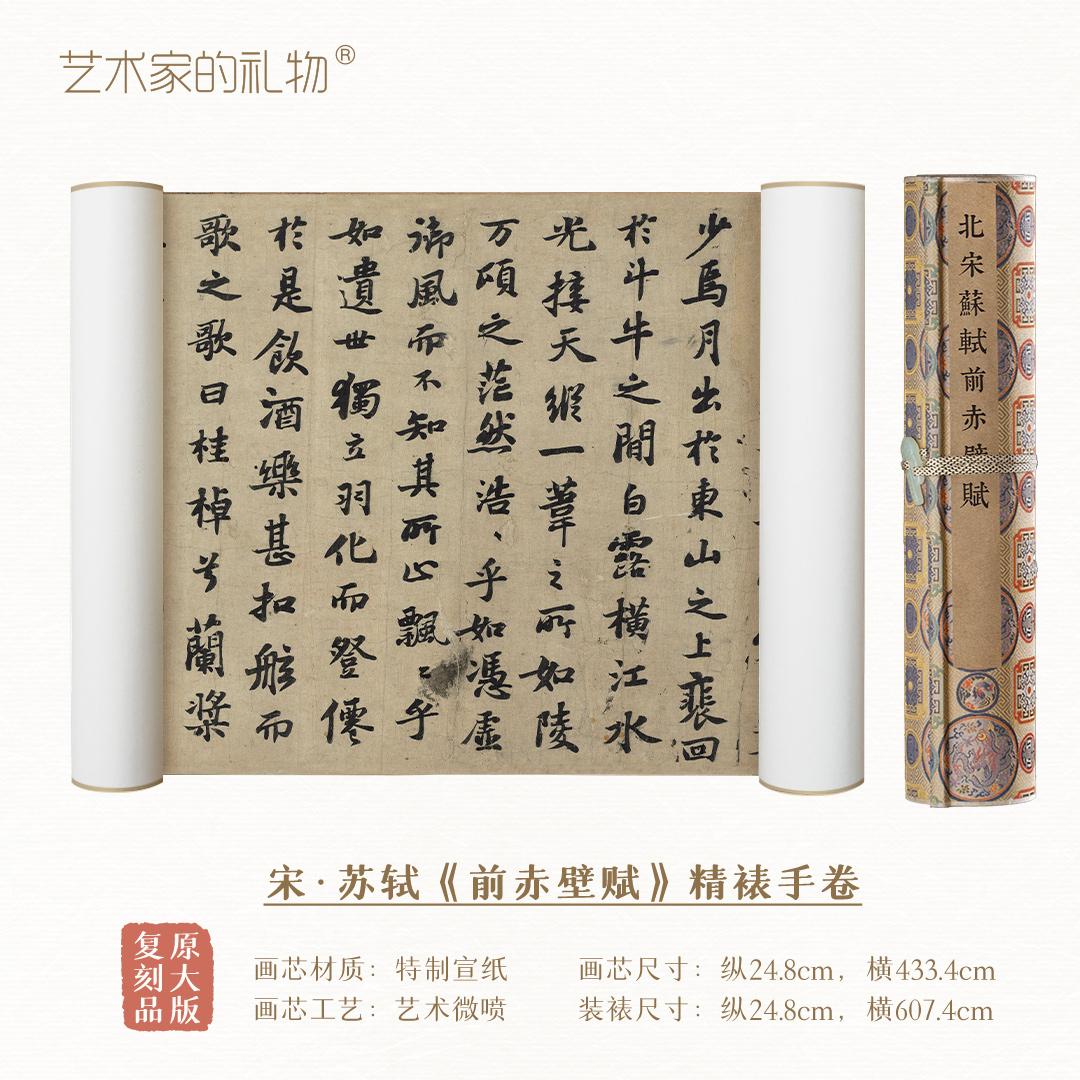 艺术家的礼物®
少焉月出於東山之上裴回
於斗牛之間白露橫江水
光接天縱一葦之所如陵
万頃之茫然浩、乎如憑虛
御風而不知其所止飄〻乎
如遺世獨立羽化而登僊
於是飲酒樂甚扣舷而
歌之歌曰桂棹兮蘭槳
北宋蘇軾前赤壁賦
宋·苏轼《前赤壁赋》精裱手卷
原大版
复刻品
画芯材质：特制宣纸
画芯工艺：艺术微喷
画芯尺寸：纵24.8cm，横433.4cm
装裱尺寸：纵24.8cm，横607.4cm